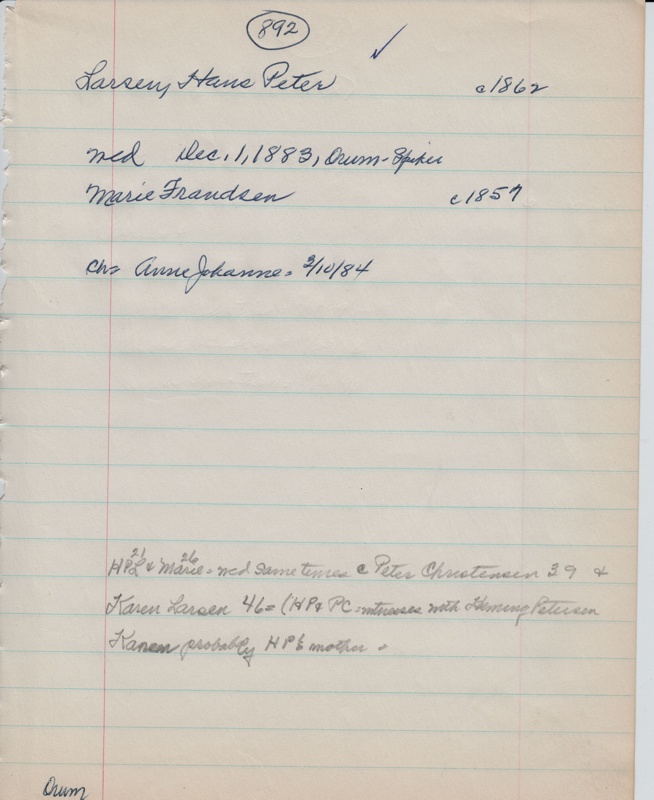 892
Larsen, Hans Peter c1862
wed Dec. 1, 1883, Orum-Spiker
Marie Frandsen c1857
ch= Anne Johanne = 2/10/84
21 26
HPL & Marie = wed same time c Peter Christensen 39 &
Karen Larsen 46 = (HP & PC witnesses with Peterson
Karen probably HP's mother -
Orum